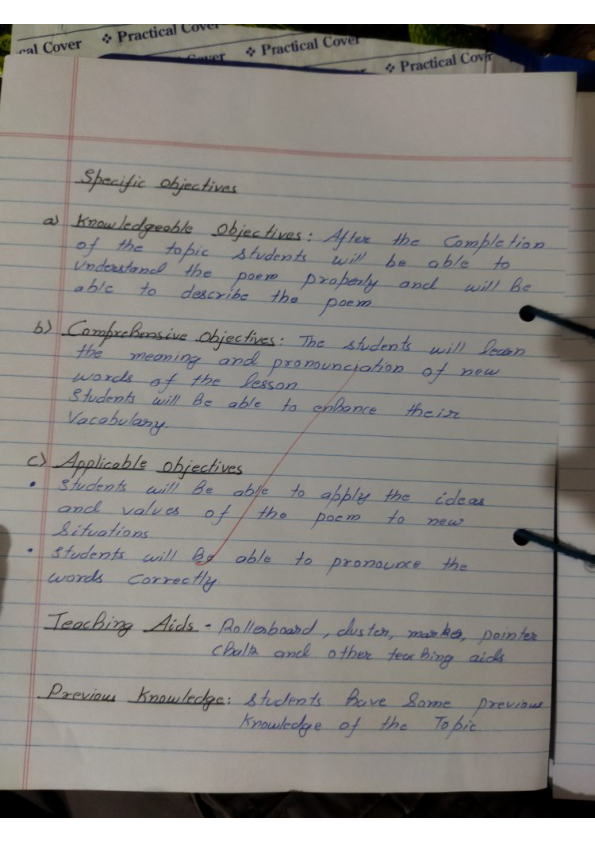 cal Cover ❖ Practical Cover
Cover ❖ Practical Cover
❖ Practical Cover
Specific Objectives
a) Knowledgeable Objectives: After the Completion
of the topic students will be able to
understand the poem properly and will Be
able to describe the poem
b) Comprehensive Objectives: The students will learn
the meaning and pronounciation of new
words of the lesson
Students will Be able to enhance their
Vacabulary
c) Applicable Objectives
• Students will Be able to apply the ideas
and values of the poem to new
Situations
• Students will Be able to pronounce the
words correctly
Teaching Aids - Rollerboard, duster, marker, pointer
Chalk and other teaching aids
Previous Knowledge: Students have Some previous
Knowledge of the Topic